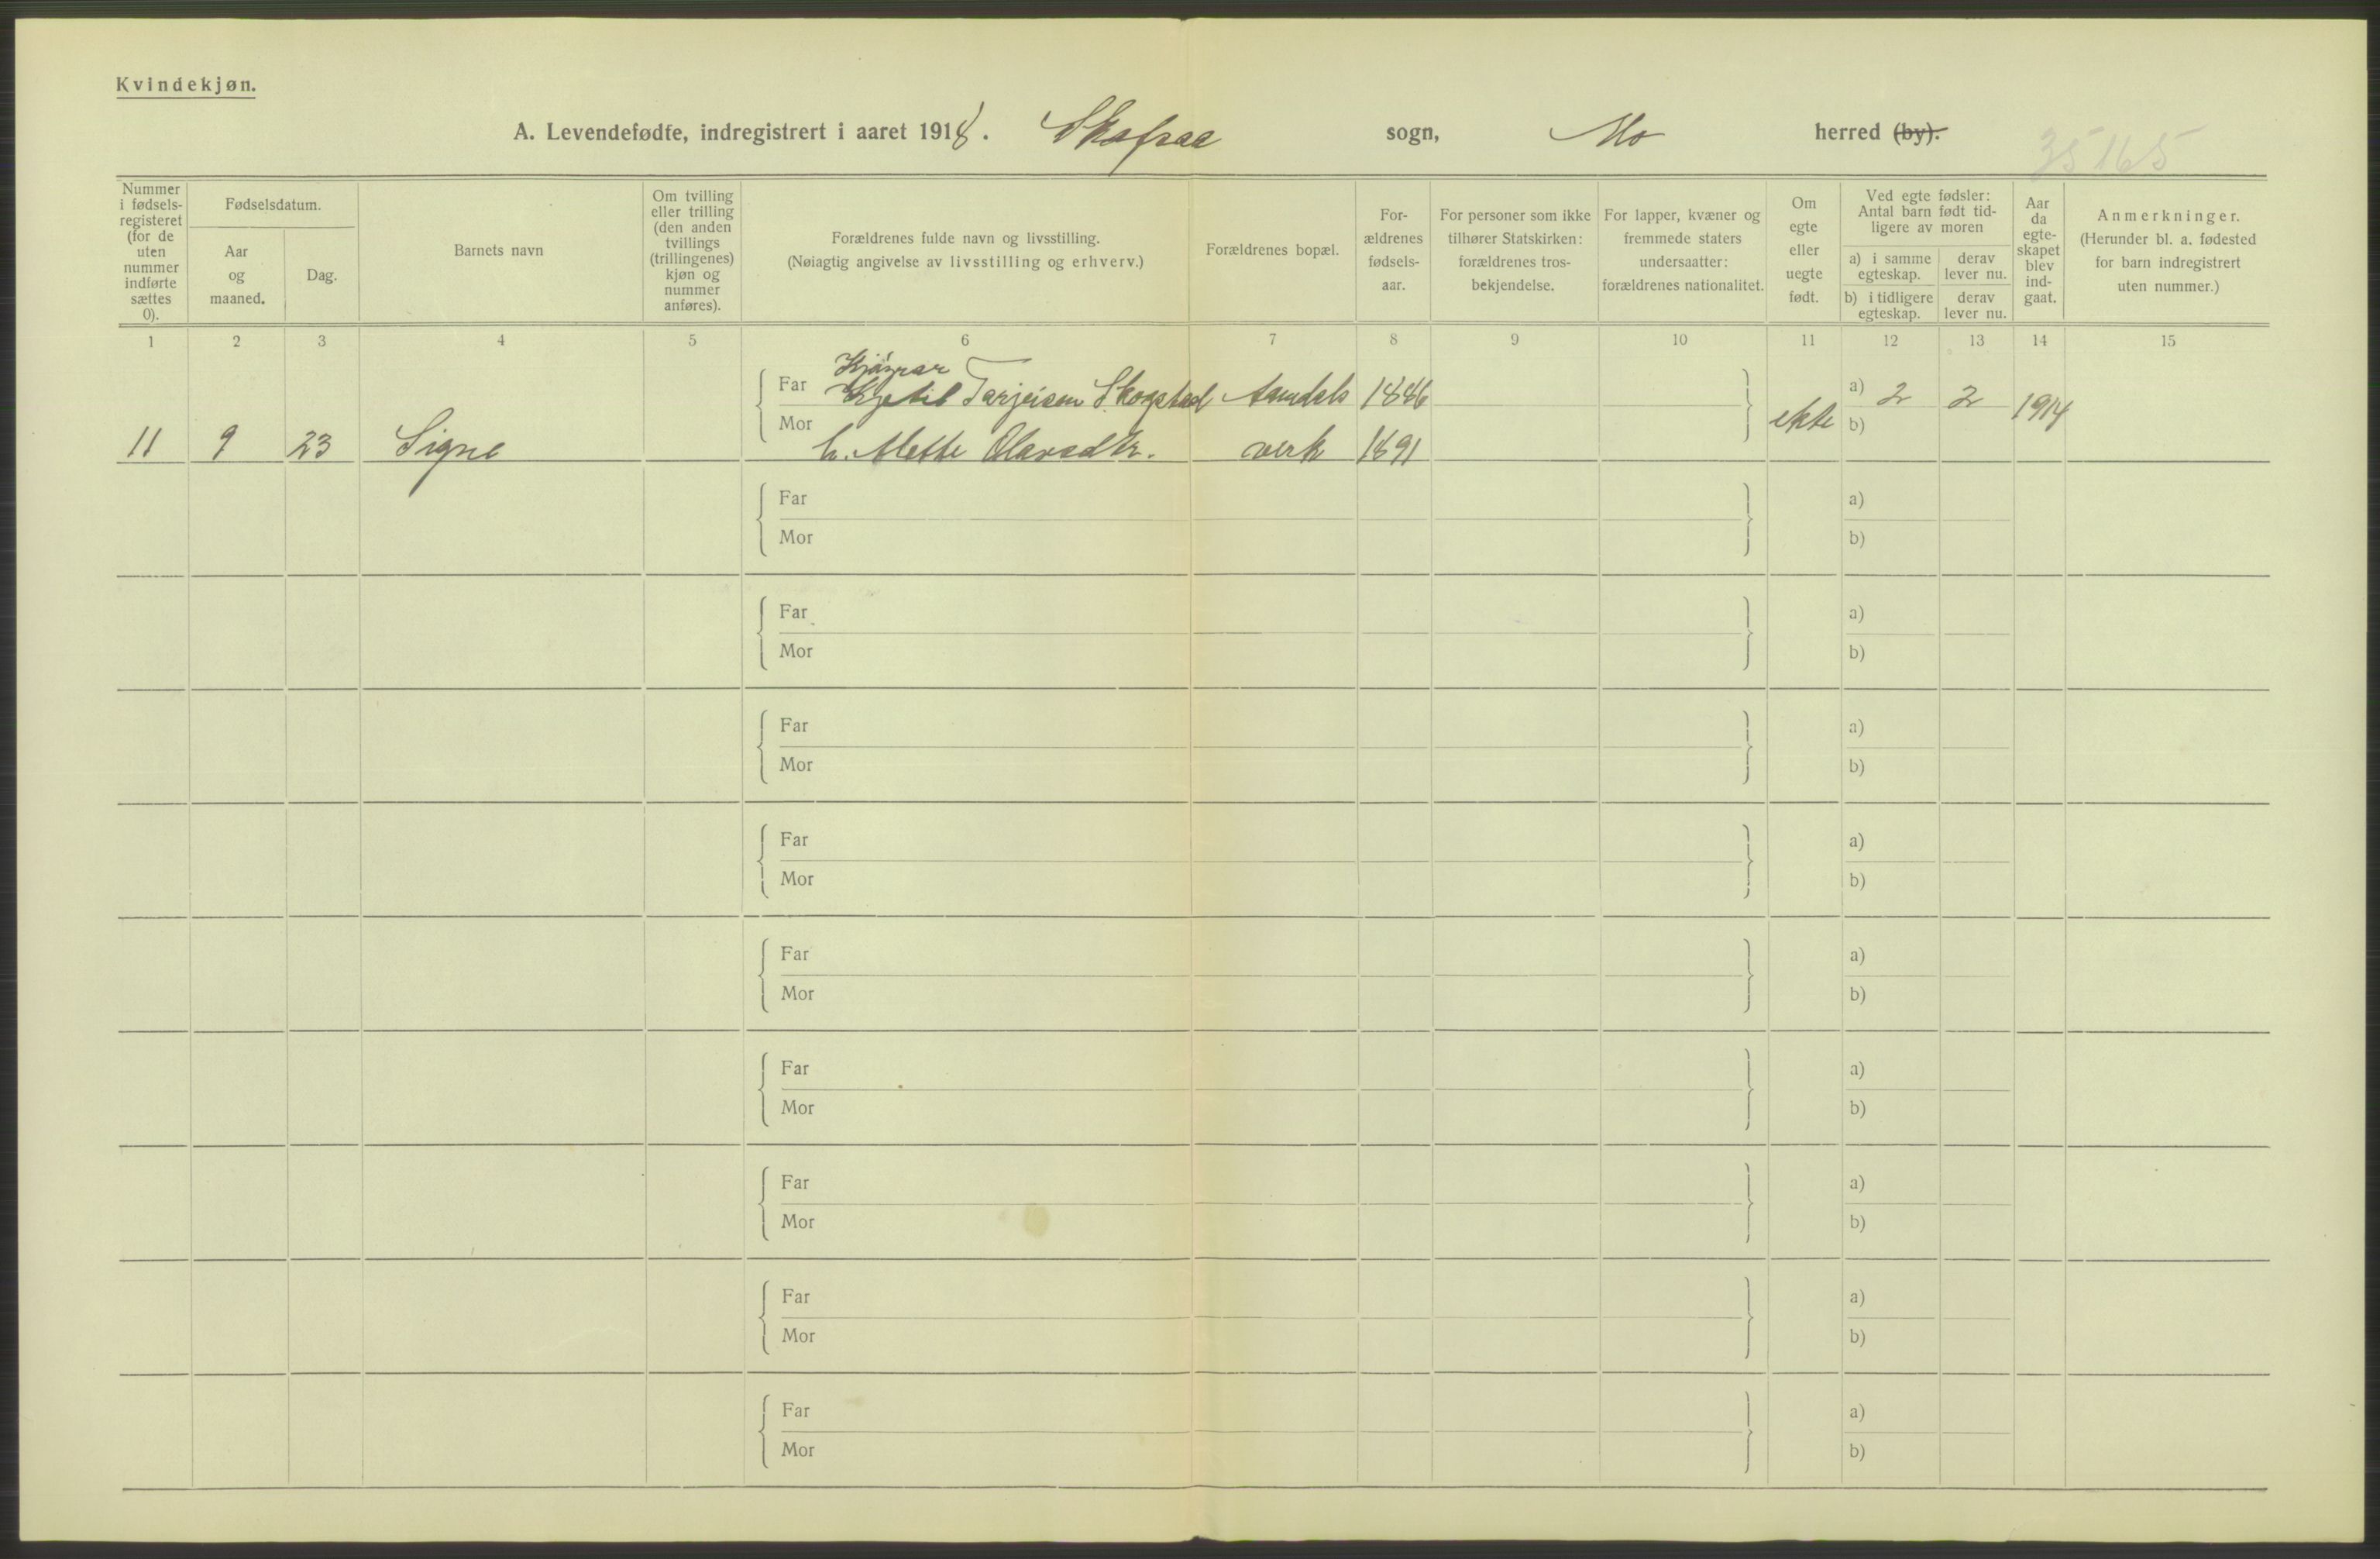 Kvindekjøn.
A. Levendefødte, indregistrert i aaret 1918. Skafsaa sogn, Mo herred (by).
35165
Nummer i fødselsregisteret (for de uten nummer indførte sættes 0).
Fødselsdatum.
Aar og maaned.
Dag.
Barnets navn
Om tvilling eller trilling (den anden tvillings (trillingenes) kjøn og nummer anføres).
Forældrenes fulde navn og livsstilling.
(Nøiagtig angivelse av livsstilling og erhverv.)
Forældrenes bopæl.
For-
ældrenes
fødsels-
aar.
For personer som ikke
tilhører Statskirken:
forældrenes tros-
bekjendelse.
For lapper, kvæner og
fremmede staters
undersaatter:
forældrenes nationalitet.
Om
egte
eller
uegte
født.
Ved egte fødsler:
Antal barn født tid-
ligere av moren
a) i samme egteskap.
derav lever nu.
b) i tidligere egteskap.
derav lever nu.
Aar
da
egte-
skapet
blev
ind-
gaat.
Anmerkninger.
(Herunder bl. a. fødested
for barn indregistrert
uten nummer.)
1 2 3 4 5 6 7 8 9 10 11 12 13 14 15
Far Kjetil Tarjeisen Skogstad Aamdals 1886 a) 2 2
11 9 23 Signe Mor h. Mette Olavsdtr. verk 1891 ekte b) 1914
Far a)
Mor b)
Far a)
Mor b)
Far a)
Mor b)
Far a)
Mor b)
Far a)
Mor b)
Far a)
Mor b)
Far a)
Mor b)
Far a)
Mor b)
Far a)
Mor b)